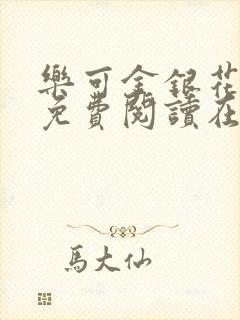 樂可金銀花
免費閱讀在
馬大仙